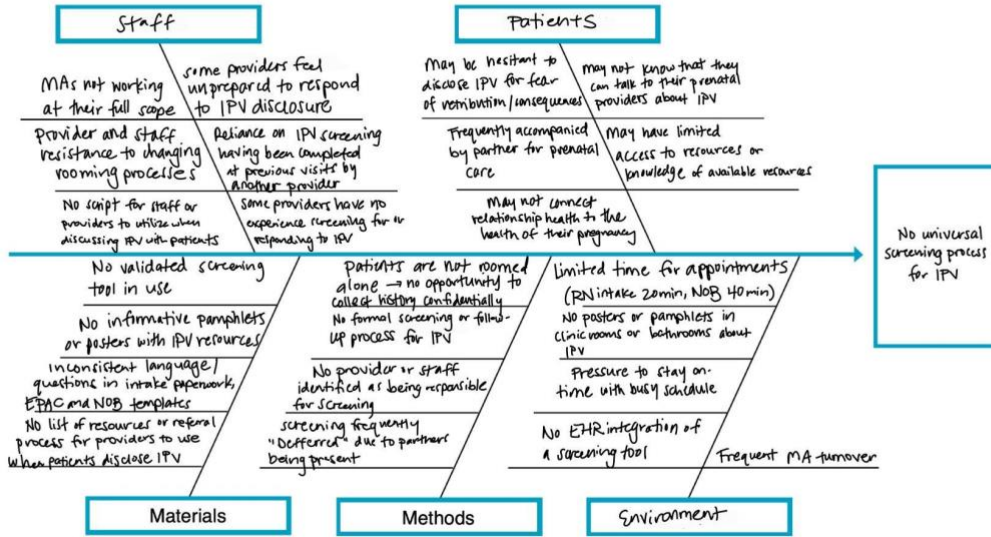 Staff
MAs not working
at their full scope
some providers feel
unprepared to respond
to IPV disclosure
Provider and staff
resistance to changing
rooming processes
Reliance on IPV screening
having been completed
at previous visits by
another provider
No script for staff or
providers to utilize when
discussing IPV with patients
Some providers have no
experience screening for or
responding to IPV
Patients
May be hesitant to
disclose IPV for fear
of retribution/consequences
may not know that they
can talk to their prenatal
providers about IPV
Frequently accompanied
by partner for prenatal
care
May have limited
access to resources or
knowledge of available resources
May not connect
relationship health to the
health of their pregnancy
No universal
screening process
for IPV
No validated screening
tool in use
No informative pamphlets
or posters with IPV resources
Inconsistent language/
questions in intake paperwork,
EPAC and NOB templates
No list of resources or referral
process for providers to use
when patients disclose IPV
Materials
Patients are not roomed
alone → no opportunity to
collect history confidentially
No formal screening or follow-
up process for IPV
No provider or staff
identified as being responsible
for screening
screening frequently
"Defferred" due to partners
being present
Methods
Limited time for appointments
(RN intake 20min, NOB 40min)
No posters or pamphlets in
clinic rooms or bathrooms about
IPV
Pressure to stay on-
time with busy schedule
No EHR integration of
a screening tool
Frequent MA turnover
Environment